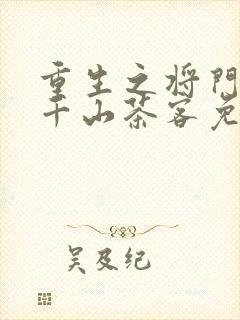 重生之将门
千山茶客免
吴及纪